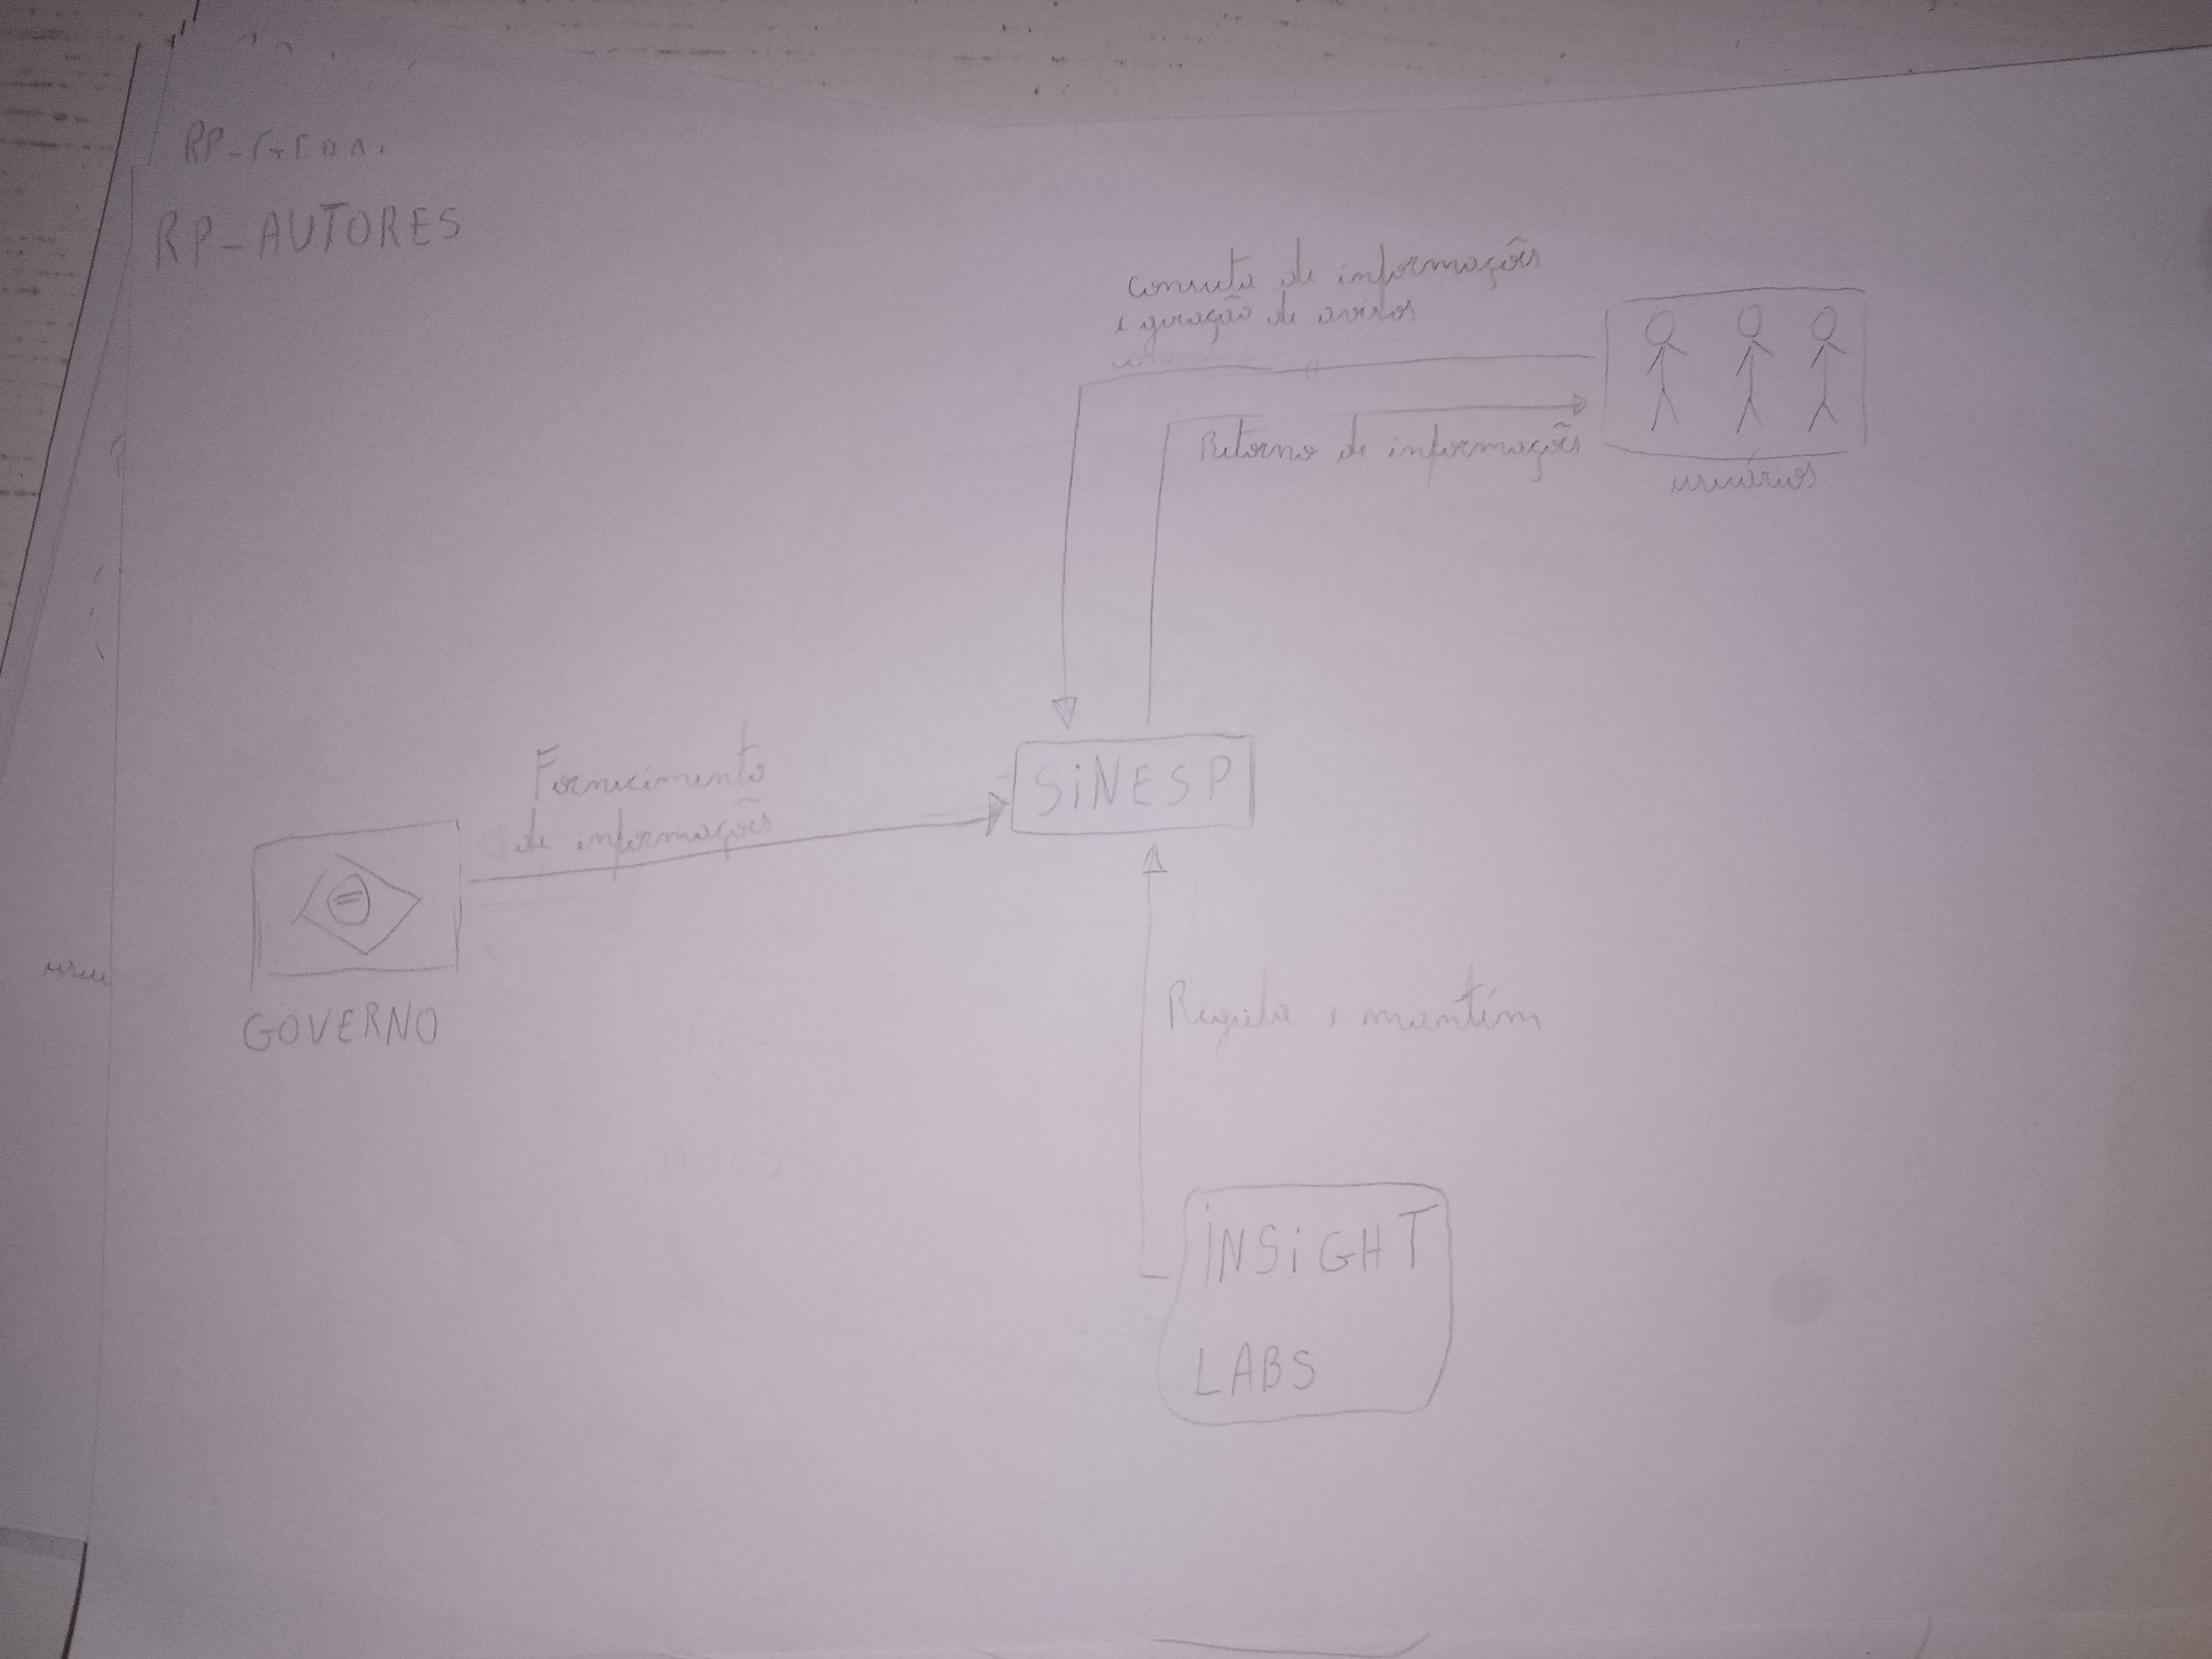 RP-AUTORES
consuta de informações
e geração de avisos
Retorno de informações
usuários
Fornecimento
de informações
SiNESP
GOVERNO
Regula e mantém
iNSiGHT
LABS